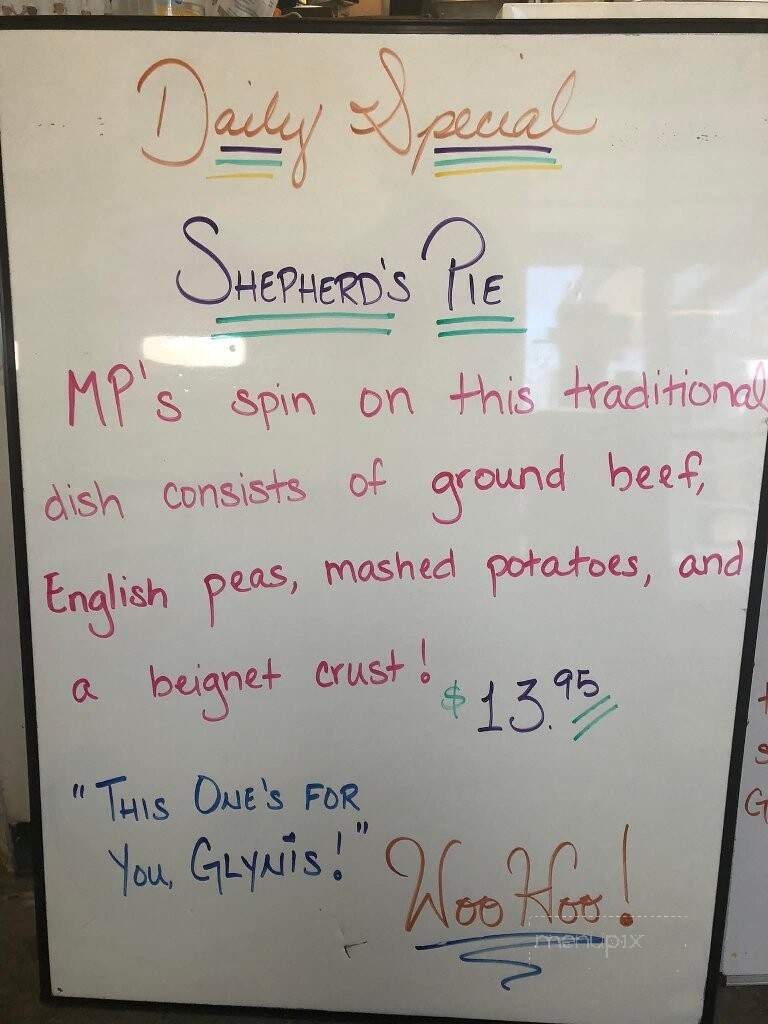 Daily Special
SHEPHERD'S PIE
MP's spin on this traditional
dish consists of ground beef,
English peas, mashed potatoes, and
a beignet crust!
$13.95
"THIS ONE'S FOR
YOU, GLYNIS!"
Woo Hoo!
menupix